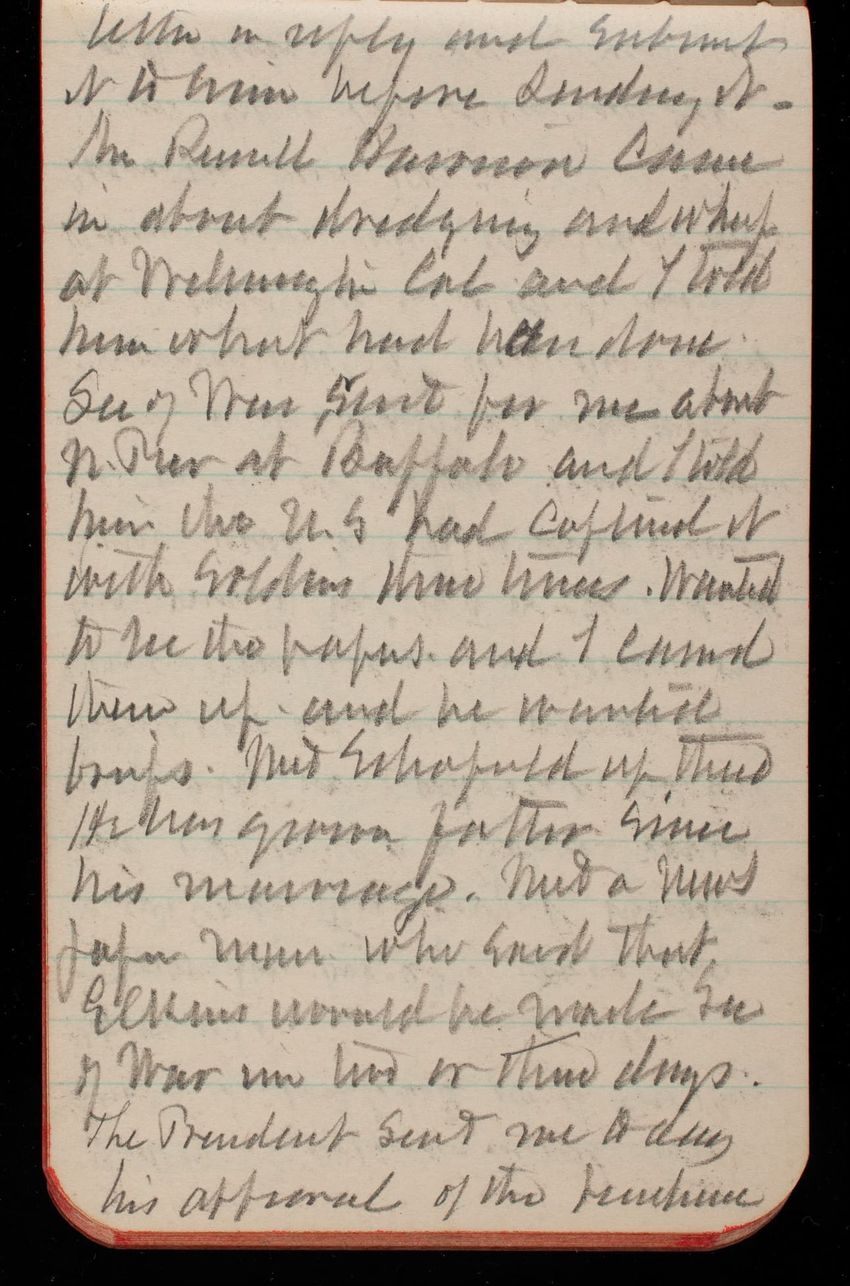 letter in reply and submit
it to him before sending it -
Mr Russell Harrison came
in about dredging and wharf
at Wilmington Cal and I told
him what had been done
Sec of War sent for me about
N. Pier at Buffalo and I told
him the U.S had captured it
with soldiers three times. Wanted
to see the papers and I carried
them up and he wanted
briefs. Met Schofield up there
He has grown fatter since
his marriage. Met a news
paper man who said that
Elkins would be made Sec
of War in two or three days.
The President sent me to day
his approval of the purchase